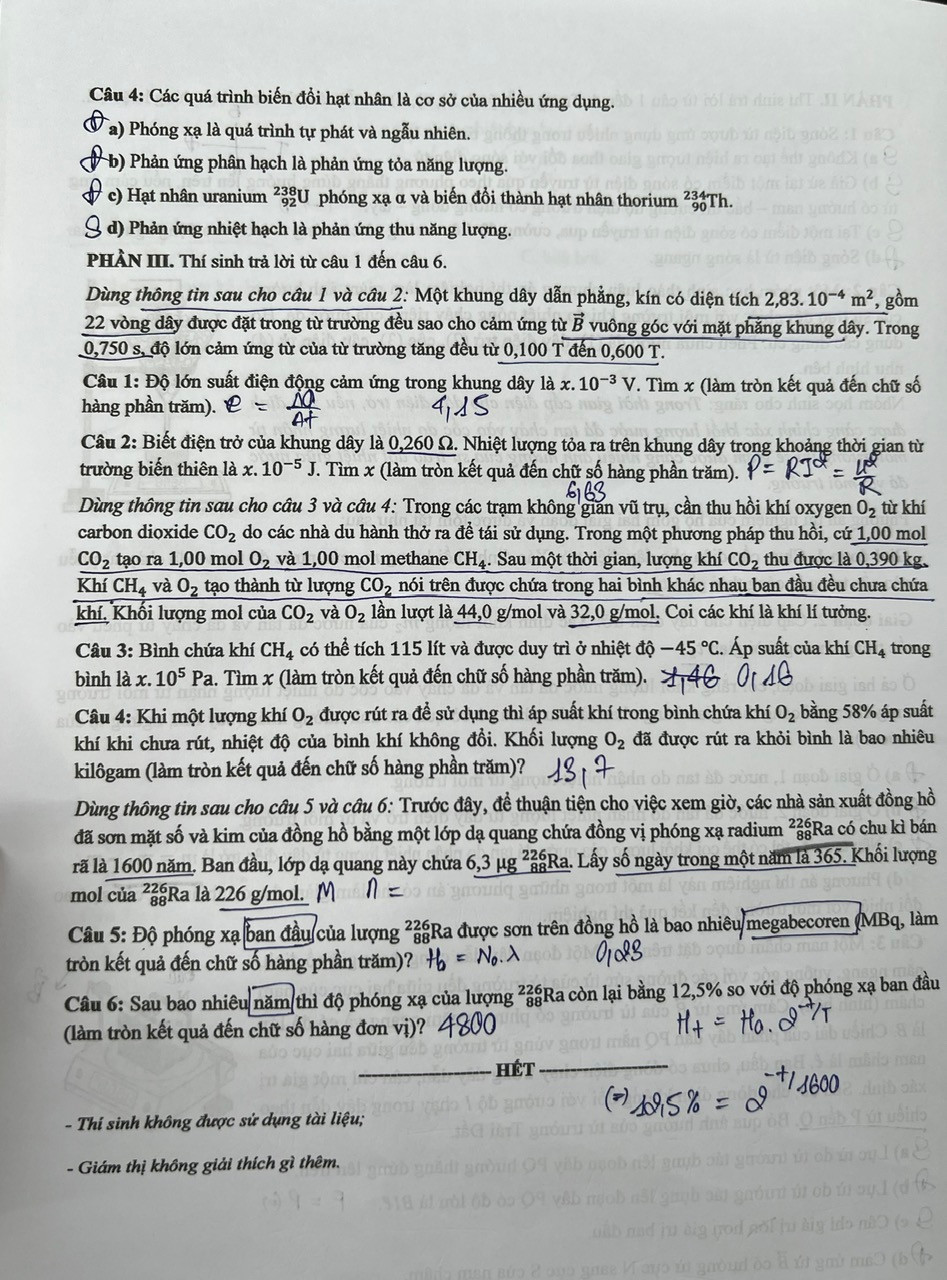 Câu 4: Các quá trình biến đổi hạt nhân là cơ sở của nhiều ứng dụng.
Đ a) Phóng xạ là quá trình tự phát và ngẫu nhiên.
Đ b) Phản ứng phân hạch là phản ứng tỏa năng lượng.
Đ c) Hạt nhân uranium ²³⁸₉₂U phóng xạ α và biến đổi thành hạt nhân thorium ²³⁴₉₀Th.
S d) Phản ứng nhiệt hạch là phản ứng thu năng lượng.
PHẦN III. Thí sinh trả lời từ câu 1 đến câu 6.
Dùng thông tin sau cho câu 1 và câu 2: Một khung dây dẫn phẳng, kín có diện tích 2,83. 10⁻⁴ m², gồm
22 vòng dây được đặt trong từ trường đều sao cho cảm ứng từ B⃗ vuông góc với mặt phẳng khung dây. Trong
0,750 s, độ lớn cảm ứng từ của từ trường tăng đều từ 0,100 T đến 0,600 T.
Câu 1: Độ lớn suất điện động cảm ứng trong khung dây là x. 10⁻³ V. Tìm x (làm tròn kết quả đến chữ số
hàng phần trăm). e = ΔΦ/Δt 4,15
Câu 2: Biết điện trở của khung dây là 0,260 Ω. Nhiệt lượng tỏa ra trên khung dây trong khoảng thời gian từ
trường biến thiên là x. 10⁻⁵ J. Tìm x (làm tròn kết quả đến chữ số hàng phần trăm). P = RI² = U²/R
6,63
Dùng thông tin sau cho câu 3 và câu 4: Trong các trạm không gian vũ trụ, cần thu hồi khí oxygen O₂ từ khí
carbon dioxide CO₂ do các nhà du hành thở ra để tái sử dụng. Trong một phương pháp thu hồi, cứ 1,00 mol
CO₂ tạo ra 1,00 mol O₂ và 1,00 mol methane CH₄. Sau một thời gian, lượng khí CO₂ thu được là 0,390 kg.
Khí CH₄ và O₂ tạo thành từ lượng CO₂ nói trên được chứa trong hai bình khác nhau ban đầu đều chưa chứa
khí. Khối lượng mol của CO₂ và O₂ lần lượt là 44,0 g/mol và 32,0 g/mol. Coi các khí là khí lí tưởng.
Câu 3: Bình chứa khí CH₄ có thể tích 115 lít và được duy trì ở nhiệt độ −45 °C. Áp suất của khí CH₄ trong
bình là x. 10⁵ Pa. Tìm x (làm tròn kết quả đến chữ số hàng phần trăm). 0,16
Câu 4: Khi một lượng khí O₂ được rút ra để sử dụng thì áp suất khí trong bình chứa khí O₂ bằng 58% áp suất
khí khi chưa rút, nhiệt độ của bình khí không đổi. Khối lượng O₂ đã được rút ra khỏi bình là bao nhiêu
kilôgam (làm tròn kết quả đến chữ số hàng phần trăm)? 13,7
Dùng thông tin sau cho câu 5 và câu 6: Trước đây, để thuận tiện cho việc xem giờ, các nhà sản xuất đồng hồ
đã sơn mặt số và kim của đồng hồ bằng một lớp dạ quang chứa đồng vị phóng xạ radium ²²⁶₈₈Ra có chu kì bán
rã là 1600 năm. Ban đầu, lớp dạ quang này chứa 6,3 μg ²²⁶₈₈Ra. Lấy số ngày trong một năm là 365. Khối lượng
mol của ²²⁶₈₈Ra là 226 g/mol. M n =
Câu 5: Độ phóng xạ ban đầu của lượng ²²⁶₈₈Ra được sơn trên đồng hồ là bao nhiêu megabecơren (MBq, làm
tròn kết quả đến chữ số hàng phần trăm)? H₀ = N₀.λ 0,23
Câu 6: Sau bao nhiêu năm thì độ phóng xạ của lượng ²²⁶₈₈Ra còn lại bằng 12,5% so với độ phóng xạ ban đầu
(làm tròn kết quả đến chữ số hàng đơn vị)? 4800 Ht = H₀.2^-t/T
HẾT
(=) 12,5% = 2^-t/1600
- Thí sinh không được sử dụng tài liệu;
- Giám thị không giải thích gì thêm.